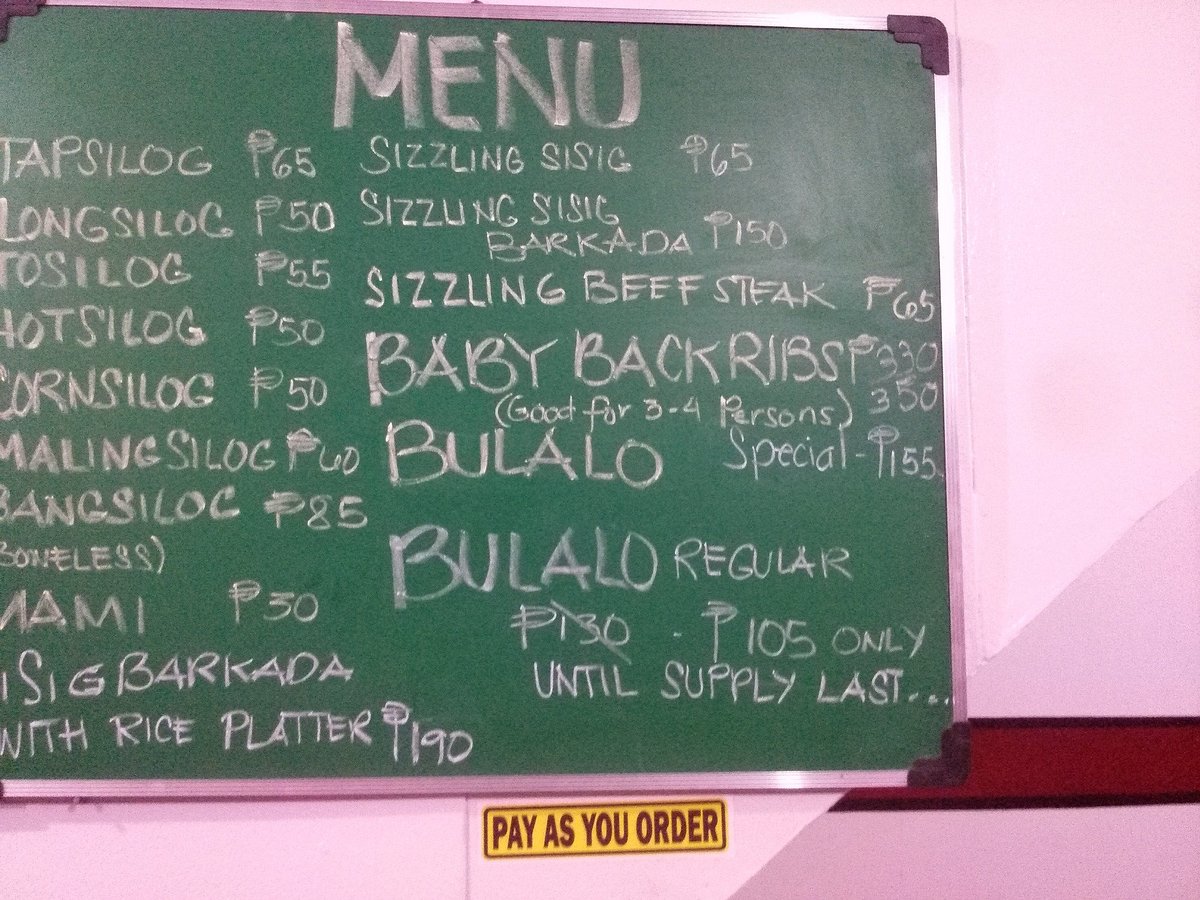 MENU
TAPSILOG ₱65
LONGSILOG ₱50
TOSILOG ₱55
HOTSILOG ₱50
CORNSILOG ₱50
MALINGSILOG ₱60
BANGSILOG ₱85
BONELESS)
MAMI ₱30
ISIG BARKADA
WITH RICE PLATTER ₱190
SIZZLING SISIG ₱65
SIZZLING SISIG
BARKADA ₱150
SIZZLING BEEF STEAK ₱65
BABY BACK RIBS ₱330
(Good for 3-4 Persons) 350
BULALO Special - ₱155
BULALO REGULAR
₱130 - ₱105 ONLY
UNTIL SUPPLY LAST...
PAY AS YOU ORDER